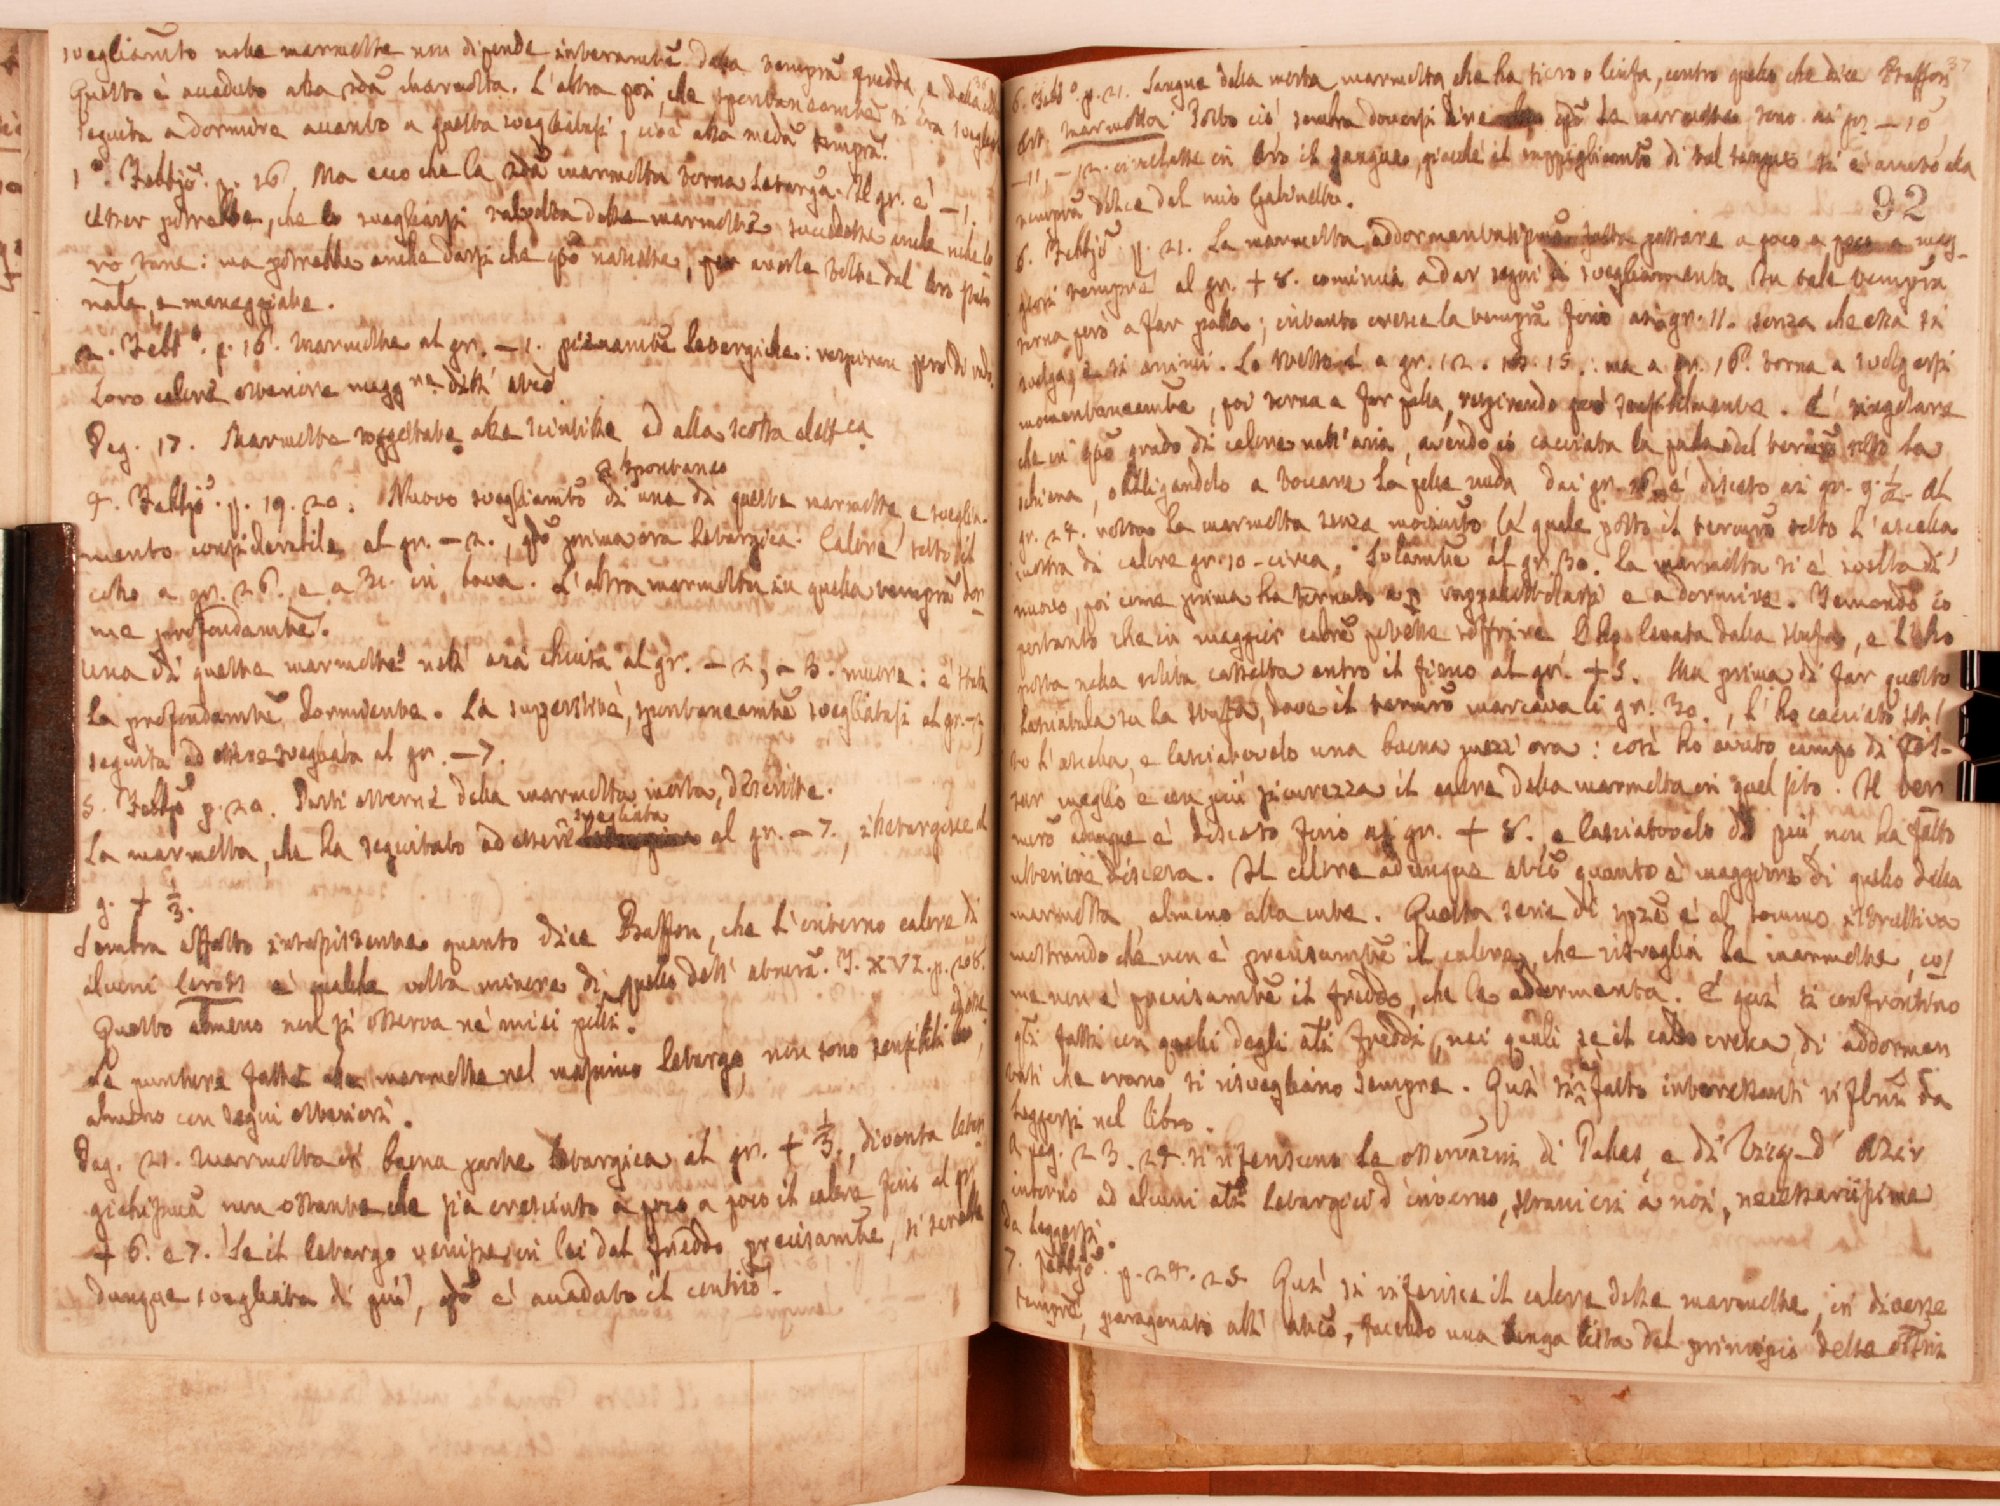 svegliamto nelle marmotte non dipende interamte dalla tempra fredda, e dalla
Questo è accaduto alla 2da marmotta. L'altra poi, che spontaneamte si era svegliata
seguita a dormire accanto a questa svegliatasi, cioè alla meda tempra.
1°. Febbjo. p. 16. Ma ecco che la 2da marmotta torna letarga. Il gr. è – 1.
Esser potrebbe, che lo svegliarsi talvolta delle marmotte succedesse anche nelle lo-
ro tane: ma potrebbe anche darsi che qto nascesse, per averle tolte dal loro stato
nale, e maneggiate.
2. Febbo. p. 16. Marmotte al gr. – 1. pienamte letargiche: respiran però di rado.
Loro calore esteriore magg re dell' atco
Pag. 17. Marmotte soggettate alla scintilla ed alla scossa elettca
4. Febbjo. p. 19. 20. Nuovo svegliamto spontaneo di una di queste marmotte, e sveglia-
mento considerabile al gr. – 2., qdo prima era letargica. Calore sotto il
collo a gr. 26. e a 31. in bocca. L'altra marmotta in quella tempra dor-
me profondamte.
Una di queste marmotte nell' aria chiusa al gr. – 2, – 3. muore: è stata
la profondamte dormiente. La superstite, spontaneamte svegliatasi al gr. – 2,
seguita ad essere svegliata al gr. – 7.
5. Febbjo p. 20. Parti esterne della marmotta morta, descritte.
La marmotta, che ha seguitato ad essere svegliata al gr. – 7., è letargica al
g. + 1/3.
Sembra affatto insussistente quanto dice Buffon, che l'interno calore di
alcuni letargi è qualche volta minore di quello dell' atmosfa. T. XVI. p. 208.
Questo almeno non si osserva ne' miei ghiri.
Le punture fatte alle marmotte nel massimo letargo, non sono sensibili ad esse,
almeno con segni esteriori.
Pag. 21. Marmotta in buona parte letargica al gr. + 1/3., diventa letar-
gichissima non ostante che sia cresciuto a poco a poco il calore fino al gr.
+ 6. e 7. Se il letargo venisse in lei dal freddo precisamte, si sarebbe
dunque svegliata di più, qdo è accaduto il contrio.
6. Febbo. p. 21. Sangue della morta marmotta, che ha siero o linfa, contro quello che dice Buffon 37
Art. Marmotta. Posto ciò, sembra doversi dire che qdo le marmotte sono ai gr. – 10
– 11, – 12. circolasse in loro il sangue, giacchè il rappigliamto di tal sangue si è avuto alla
tempra dolce del mio Gabinetto.
92
6. Febbjo. p. 21. La marmotta addormentatissima fatta passare a poco a poco a mag-
giori tempre al gr. + 8. comincia a dar segni di svegliamento. In tale tempra
torna però a far palla; intanto cresce la tempra fino ai gr. 11. senza che essa si
svolga, e si animi. Lo stesso è a gr. 12. 13. 15.: ma a gr. 16. torna a svolgersi
momentaneamte, poi torna a far palla, respirando però sensibilmente. È singolare
che in qto grado di calore nell' aria, avendo io cacciata la palla del termro sotto la
schiena, obbligandolo a toccare la pelle nuda dai gr. 16. è disceso ai gr. 9. 1/2. Al
gr. 24. resta la marmotta senza movimto la quale posto il termro sotto l'ascella
mostra di calore gr. 10 circa. Solamte al gr. 30. la marmotta si è svolta di
nuovo, poi come prima ha tornato a raggomitolarsi e a dormire. Temendo io
pertanto che in maggior calore potesse soffrire l'ho levata dalla stufa, e l'ho
posta nella solita cassetta entro il fieno al gr. + 5. Ma prima di far questo
lasciatala su la stufa, dove il termro marcava li gr. 30., l'ho cacciato sot-
to l'ascella, e lasciatovelo una buona mezz' ora: così ho avuto campo di fis-
sar meglio e con più sicurezza il calore della marmotta in quel sito. Il ter-
mro adunque è disceso fino ai gr. + 8. e lasciatovelo di più, non ha fatto
ulteriore discesa. Il calore adunque atco quanto è maggiore di quello della
marmotta, almeno alla cute. Questa serie di spze è al sommo istruttiva
mostrando che non è precisamte il calore, che risveglia le marmotte, co-
me non è precisamte il freddo, che le addormenta. E qui si confrontino
gli fatti con quelli degli ali freddi, nei quali se il caldo cresca, di addormen-
tati che erano si risvegliano sempre. Qui si fatto interessanti rifloni da
leggersi nel libro.
A pag. 23. 24. si riferiscono le osservazni di Pallas, e di Vicq-d' Azir
intorno ad alcuni ali letargici d'inverno, stranieri a noi, necessariissime
da leggersi.
7. Febbjo. p. 24. 25. Qui si riferisce il calore delle marmotte, in diverse
tempre, paragonato all' atco, facendo una lunga lista dal principio delle ossni